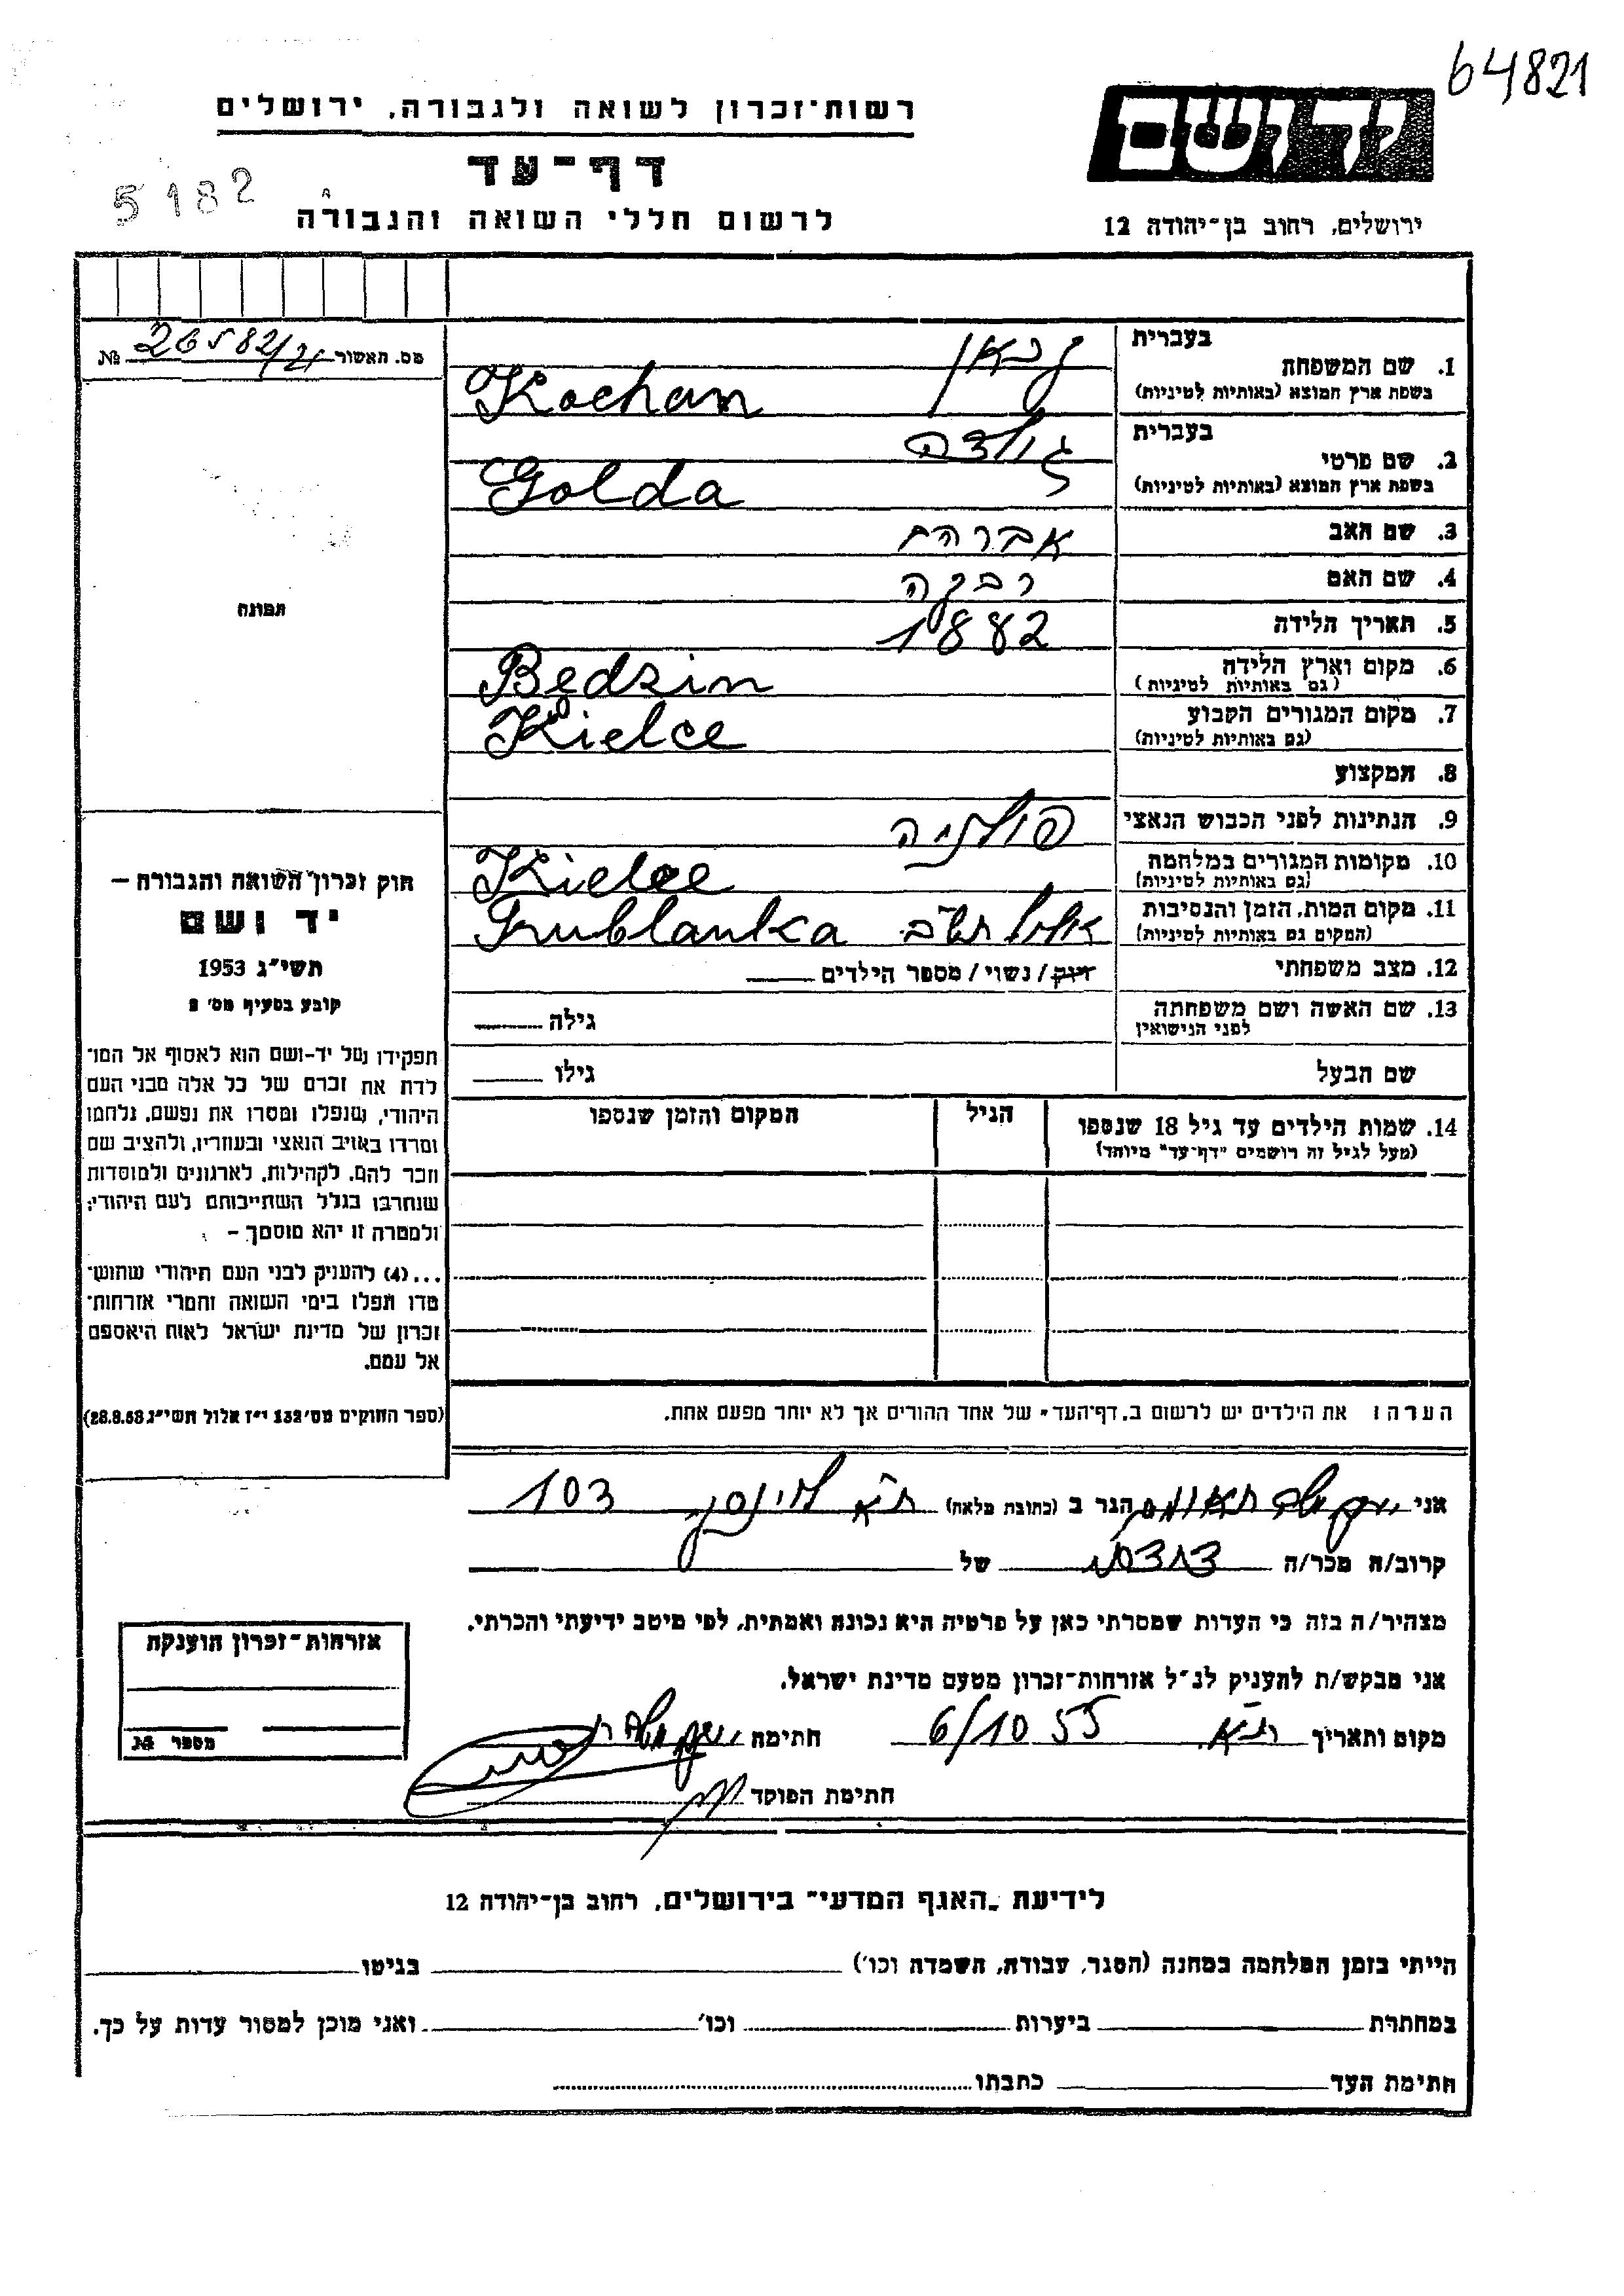 64821
ידושם
רשות־זכרון לשואה ולגבורה, ירושלים
דף־עד
לרשום חללי השואה והגבורה
ירושלים, רחוב בן־יהודה 12
5182
מס. האשור № 26582/21
בעברית
1. שם המשפחה
בשפת ארץ המוצא (באותיות לטיניות) Kochan
בעברית גולדה
2. שם פרטי
בשפת ארץ המוצא (באותיות לטיניות) Golda
3. שם האב אברהם
4. שם האם רבקה
5. תאריך הלידה 1882
6. מקום וארץ הלידה Będzin
(גם באותיות לטיניות)
7. מקום המגורים הקבוע Kielce
(גם באותיות לטיניות)
8. המקצוע
9. הנתינות לפני הכבוש הנאצי פולניה
10. מקומות המגורים במלחמה Kielce
(גם באותיות לטיניות)
11. מקום המות, הזמן והנסיבות אלול תש"ב Trublanka
(המקום גם באותיות לטיניות)
12. מצב משפחתי רוק/נשוי/מספר הילדים
13. שם האשה ושם משפחתה גילה
לפני הנישואין
שם הבעל גילו
תמונה
חוק זכרון השואה והגבורה –
יד ושם
תשי"ג 1953
קובע בסעיף מס' 2
תפקידו של יד-ושם הוא לאסוף אל המו־
לדת את זכרם של כל אלה מבני העם
היהודי, שנפלו ומסרו את נפשם, נלחמו
ומרדו באויב הנאצי ובעוזריו, ולהציב שם
וזכר להם, לקהילות, לארגונים ולמוסדות
שנחרבו בגלל השתייכותם לעם היהודי;
ולמטרה זו יהא מוסמך –
...(4) להעניק לבני העם היהודי שהוש־
מדו ונפלו בימי השואה והמרי אזרחות־
זכרון של מדינת ישראל לאות היאספם
אל עמם.
(ספר החוקים מס' 132 י"ז אלול תשי"ג 28.8.53)
14. שמות הילדים עד גיל 18 שנספו הגיל המקום והזמן שנספו
(מעל לגיל זה רושמים "דף־עד" מיוחד)
הערה: את הילדים יש לרשום ב"דף־העד" של אחד ההורים אך לא יותר מפעם אחת.
אני הגר ב (כתובת מלאה) ת"א לוינסקי 103
קרוב/ה מכר/ה של
מצהיר/ה בזה כי העדות שמסרתי כאן על פרטיה היא נכונה ואמתית, לפי מיטב ידיעתי והכרתי.
אני מבקש/ת להעניק לנ"ל אזרחות־זכרון מטעם מדינת ישראל.
מקום ותאריך ת"א. 6/10 55 חתימה
חתימת הפוקד
אזרחות־זכרון הוענקה
מספר №
לידיעת "האגף המדעי" בירושלים, רחוב בן־יהודה 12
הייתי בזמן המלחמה במחנה (הסגר, עבודה, השמדה וכו') בגיטו
במחתרת ביערות וכו' ואני מוכן למסור עדות על כך.
חתימת העד כתבתו